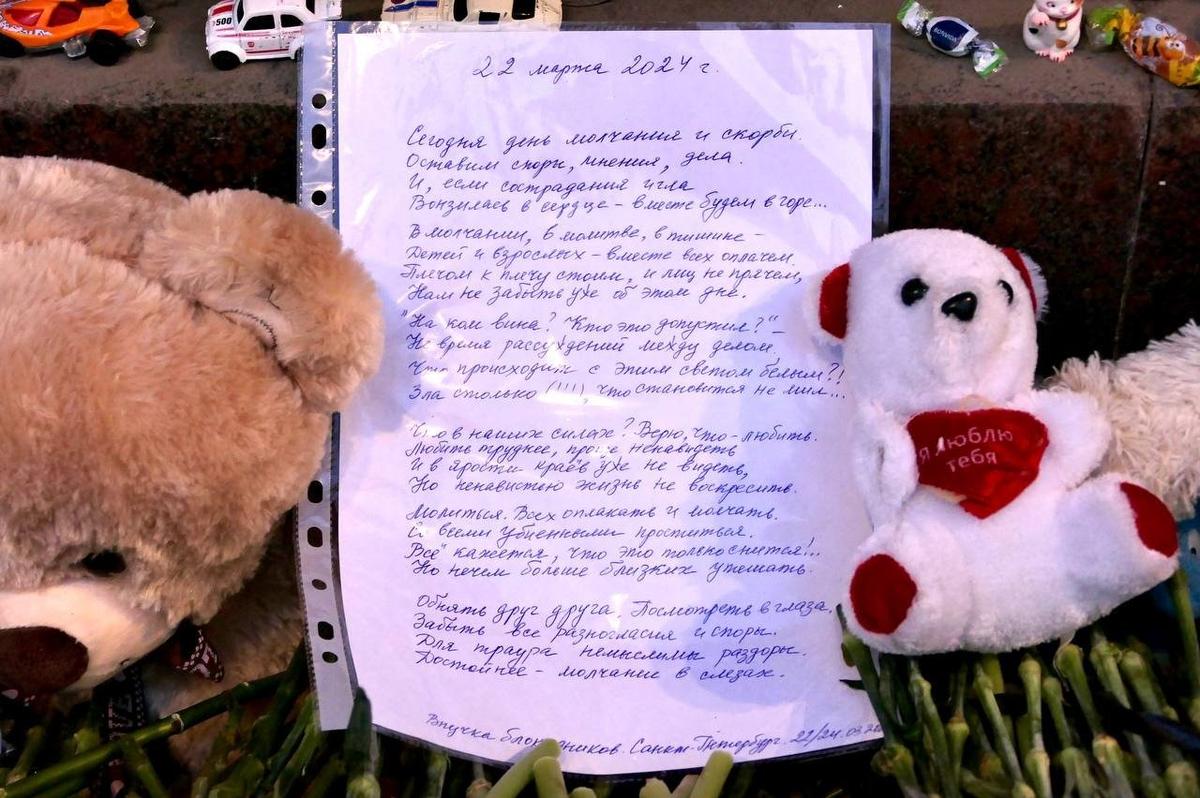 500
BONVIDA
22 марта 2024 г.
Сегодня день молчания и скорби.
Оставим споры, мнения, дела.
И, если сострадания игла
Вонзилась в сердце – вместе будем в горе...
В молчании, в молитве, в тишине –
Детей и взрослых – вместе всех оплачем.
Плечом к плечу стоим, и лиц не прячем,
Нам не забыть уже об этом дне.
"На ком вина? Кто это допустил?" –
Не время рассуждений между делом.
Что происходит с этим светом белым?!
Зла столько (!!!!), что становится не мил...
Что в наших силах? Верю, что – любить.
Любить труднее, проще ненавидеть
И в ярости краёв уже не видеть,
Но ненавистью жизнь не воскресить.
Молиться. Всех оплакать и молчать.
Со всеми убиенными проститься.
Всё кажется, что это только снится!..
Но нечем больше близких утешать.
Обнять друг друга. Посмотреть в глаза.
Забыть все разногласия и споры.
Для траура немыслимы раздоры.
Достойнее – молчание в слезах.
Внучка блокадников. Санкт-Петербург. 22/24.03.20
Я люблю
тебя